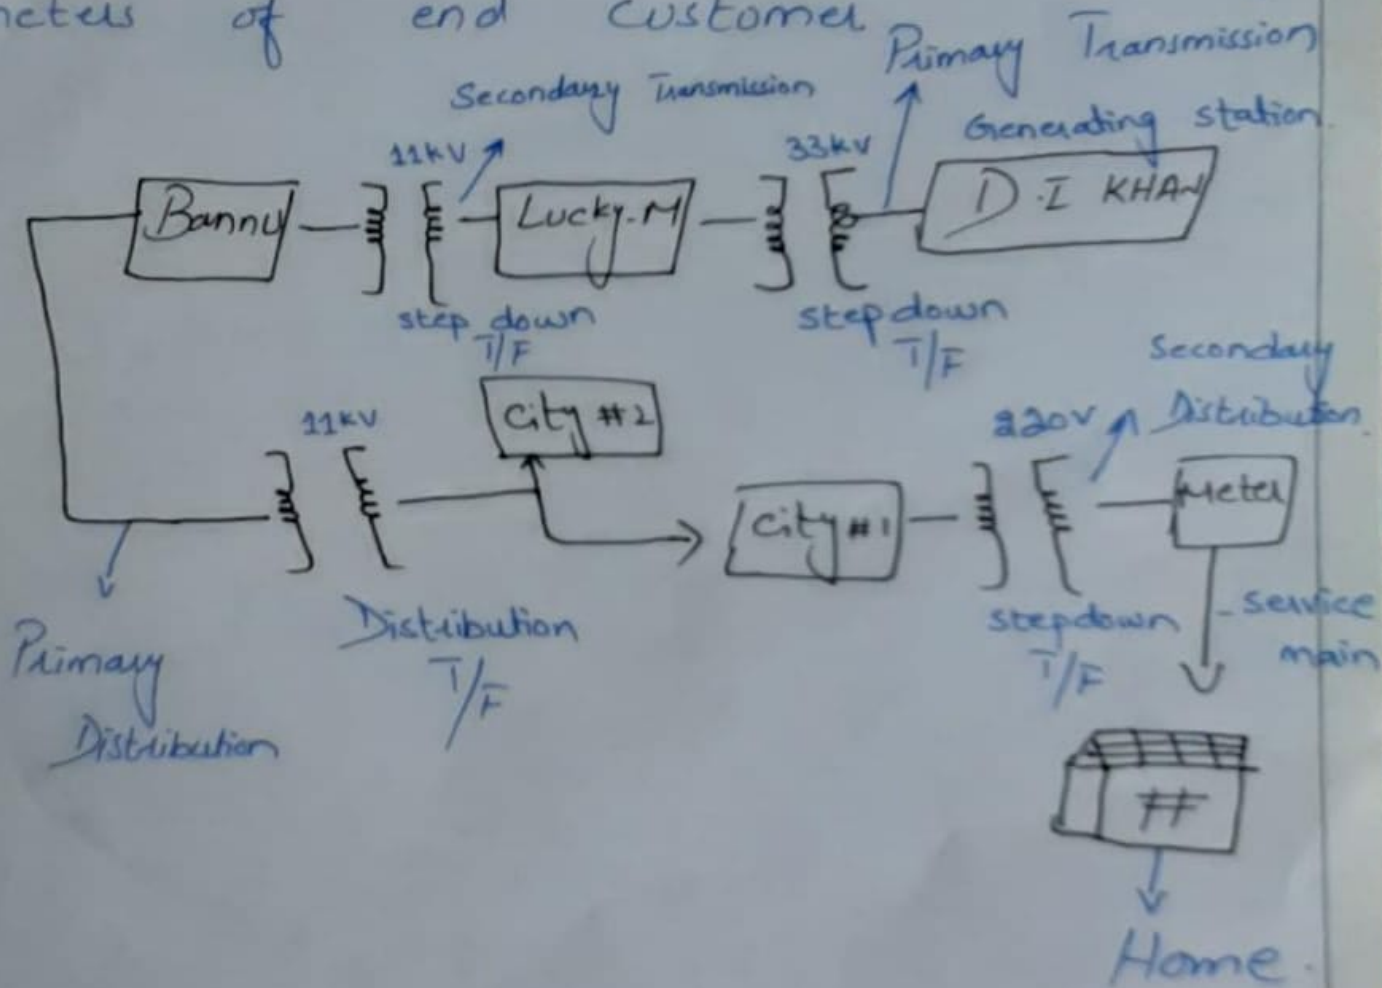 meters of end Customer
Primary Transmission
Secondary Transmission
Generating station.
11KV
33KV
Bannu
Lucky.M
D.I KHAN
step down
T/F
step down
T/F
Secondary
Distribution
City #2
11KV
220V
Meter
City #1
service
main
Distribution
T/F
step down
T/F
Primary
Distribution
#
Home.